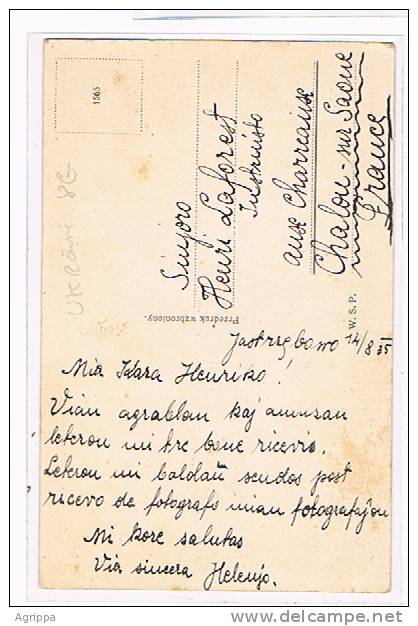 1565
Sinjoro
Henri Laforest
Instruisto
aux Charreaux
Chalon-sur Saone
France
Przedruk wzbroniony.
W. S. P.
UKRAINE
Jastrzębowo 14/8 35
Mia Kara Henriko!
Vian agrablan kaj amuzan
leteron mi tre bone ricevis.
Leteron mi baldaŭ sendos post
ricevo de fotografo mian fotografaĵon
Mi kore salutas
Via sincera Helenjo.
Agrippa
delcampe.net